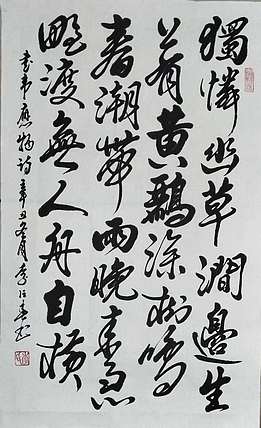 獨憐幽草澗邊生
上有黃鸝深樹鳴
春潮帶雨晚來急
野渡無人舟自橫
書韋應物詩辛丑月李